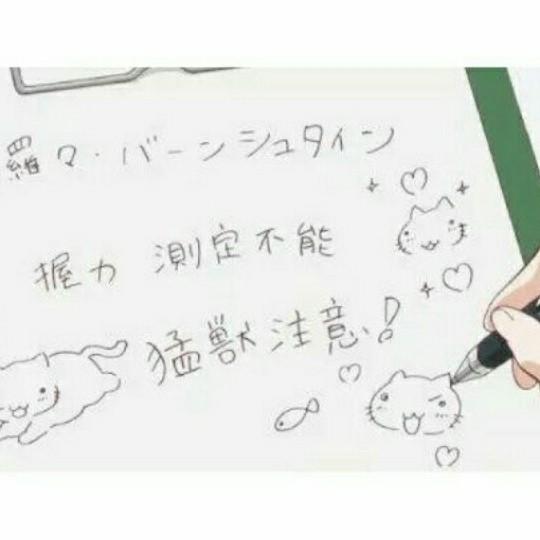 羅々・バーンシュタイン
握力 測定不能
猛獣注意!